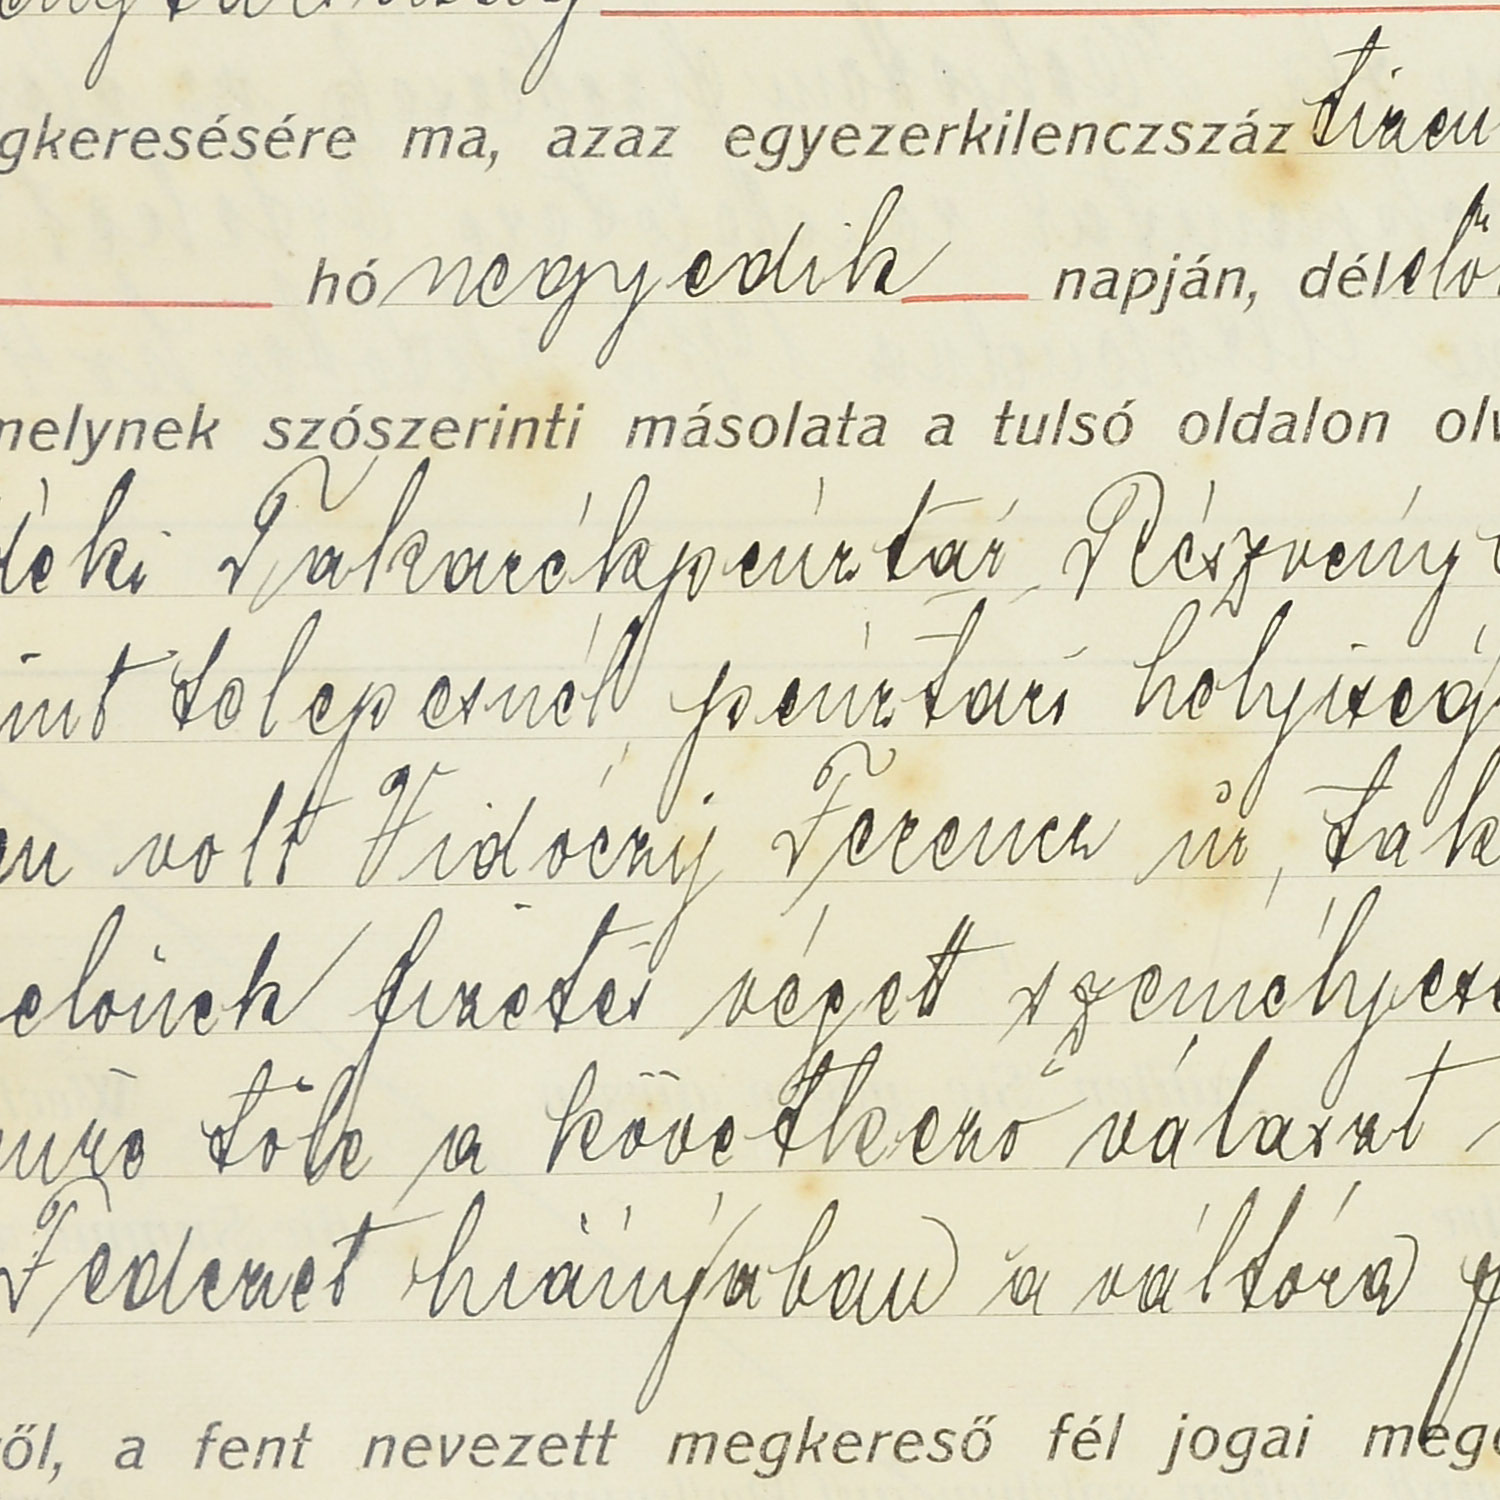 gkeresésére ma, azaz egyezerkilenczszáz tizen
hó negyedik napján, délelőt
melynek szószerinti másolata a tulsó oldalon olv
déki Takarékpénztár Részvény
int telepesnél, pénztári helyiség
en volt Vidóczy Ferencz úr, tak
előnek fizetés végett személyese
mire tőle a következő választ
Fedezet hiányában a váltóra f
ről, a fent nevezett megkereső fél jogai mego